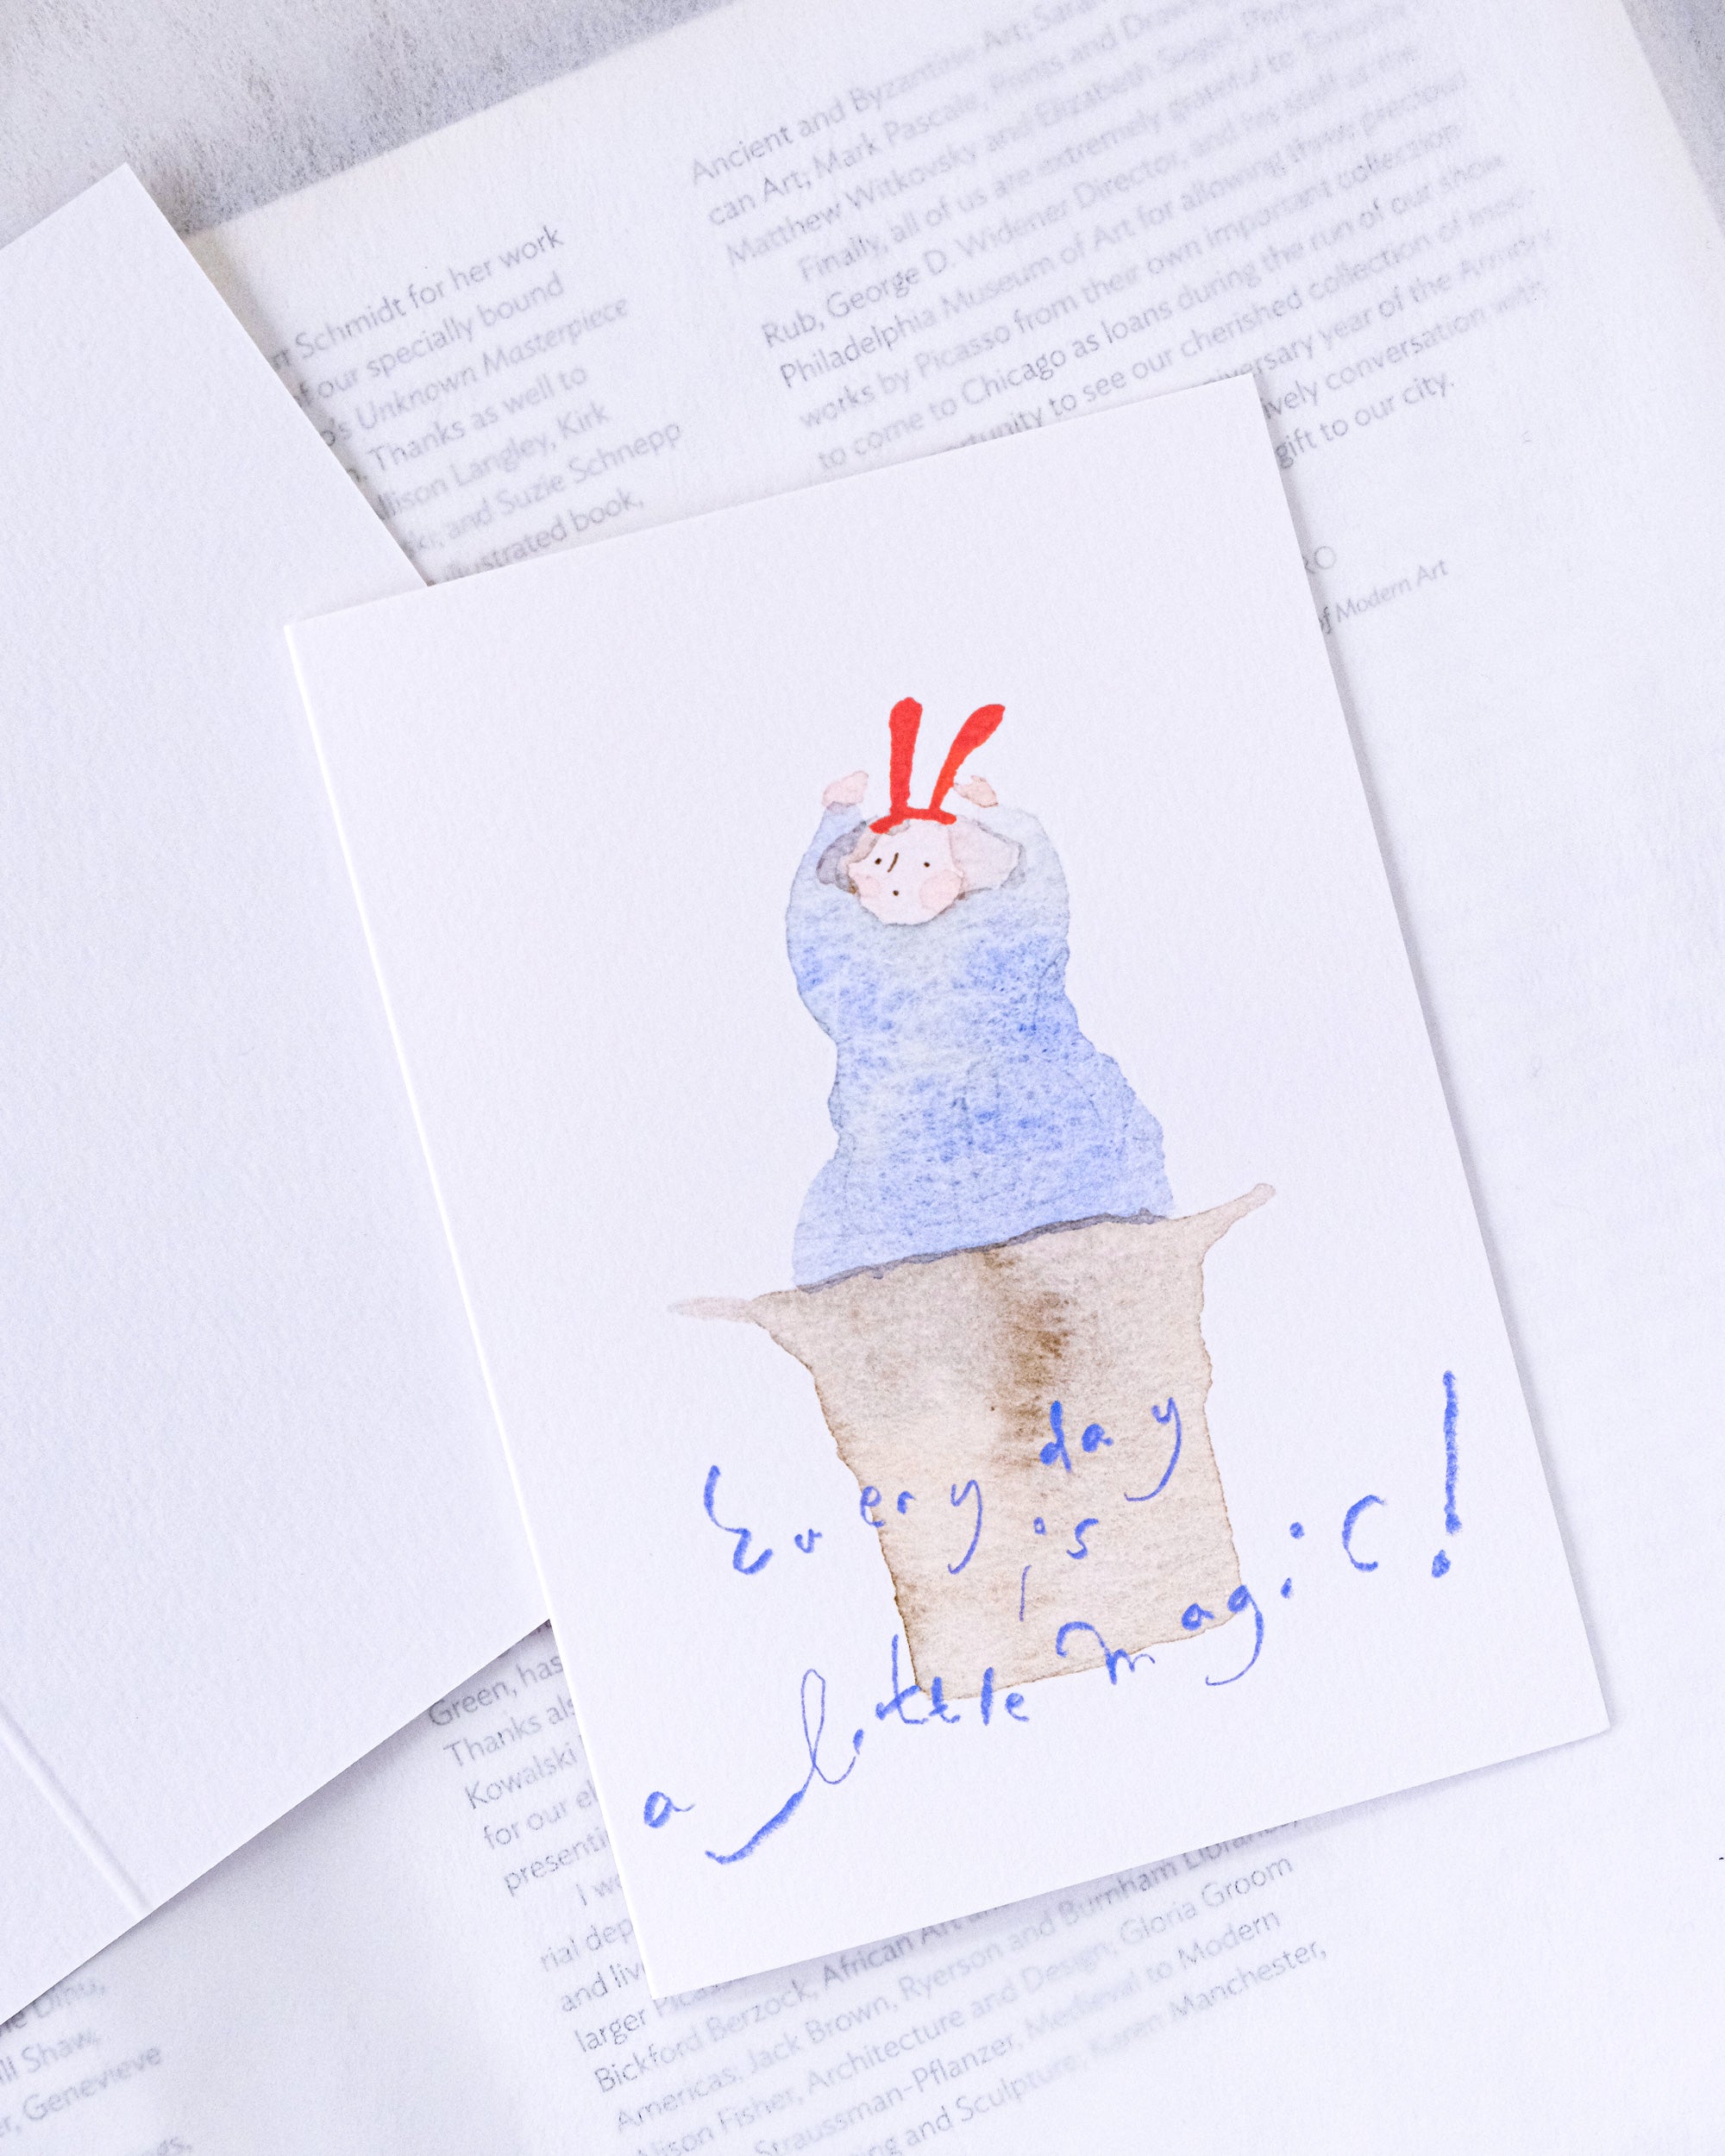 Ancient and Byzantine Art; Sarah
can Art; Mark Pascale, Prints and Drawings
Matthew Witkovsky and Elizabeth Siegel,
Finally, all of us are extremely grateful to Timothy
Rub, George D. Widener Director, and his staff at the
Philadelphia Museum of Art for allowing three precious
works by Picasso from their own important collection
to come to Chicago as loans during the run of our show.
to see our cherished collection of
year of the Armory
conversation with
gift to our city.
of Modern Art
Schmidt for her work
of our specially bound
Unknown Masterpiece
Thanks as well to
Langley, Kirk
and Suzie Schnepp
book,
Every day
is
a little magic!
Green, has
Thanks
Kowalski
for our
I
and
larger
Bickford Berzock, African Art
Americas; Jack Brown, Ryerson and Burnham Libraries;
Alison Fisher, Architecture and Design; Gloria Groom
Straussman-Pflanzer, Medieval to Modern
and Sculpture; Karen Manchester,
Shaw,
Genevieve